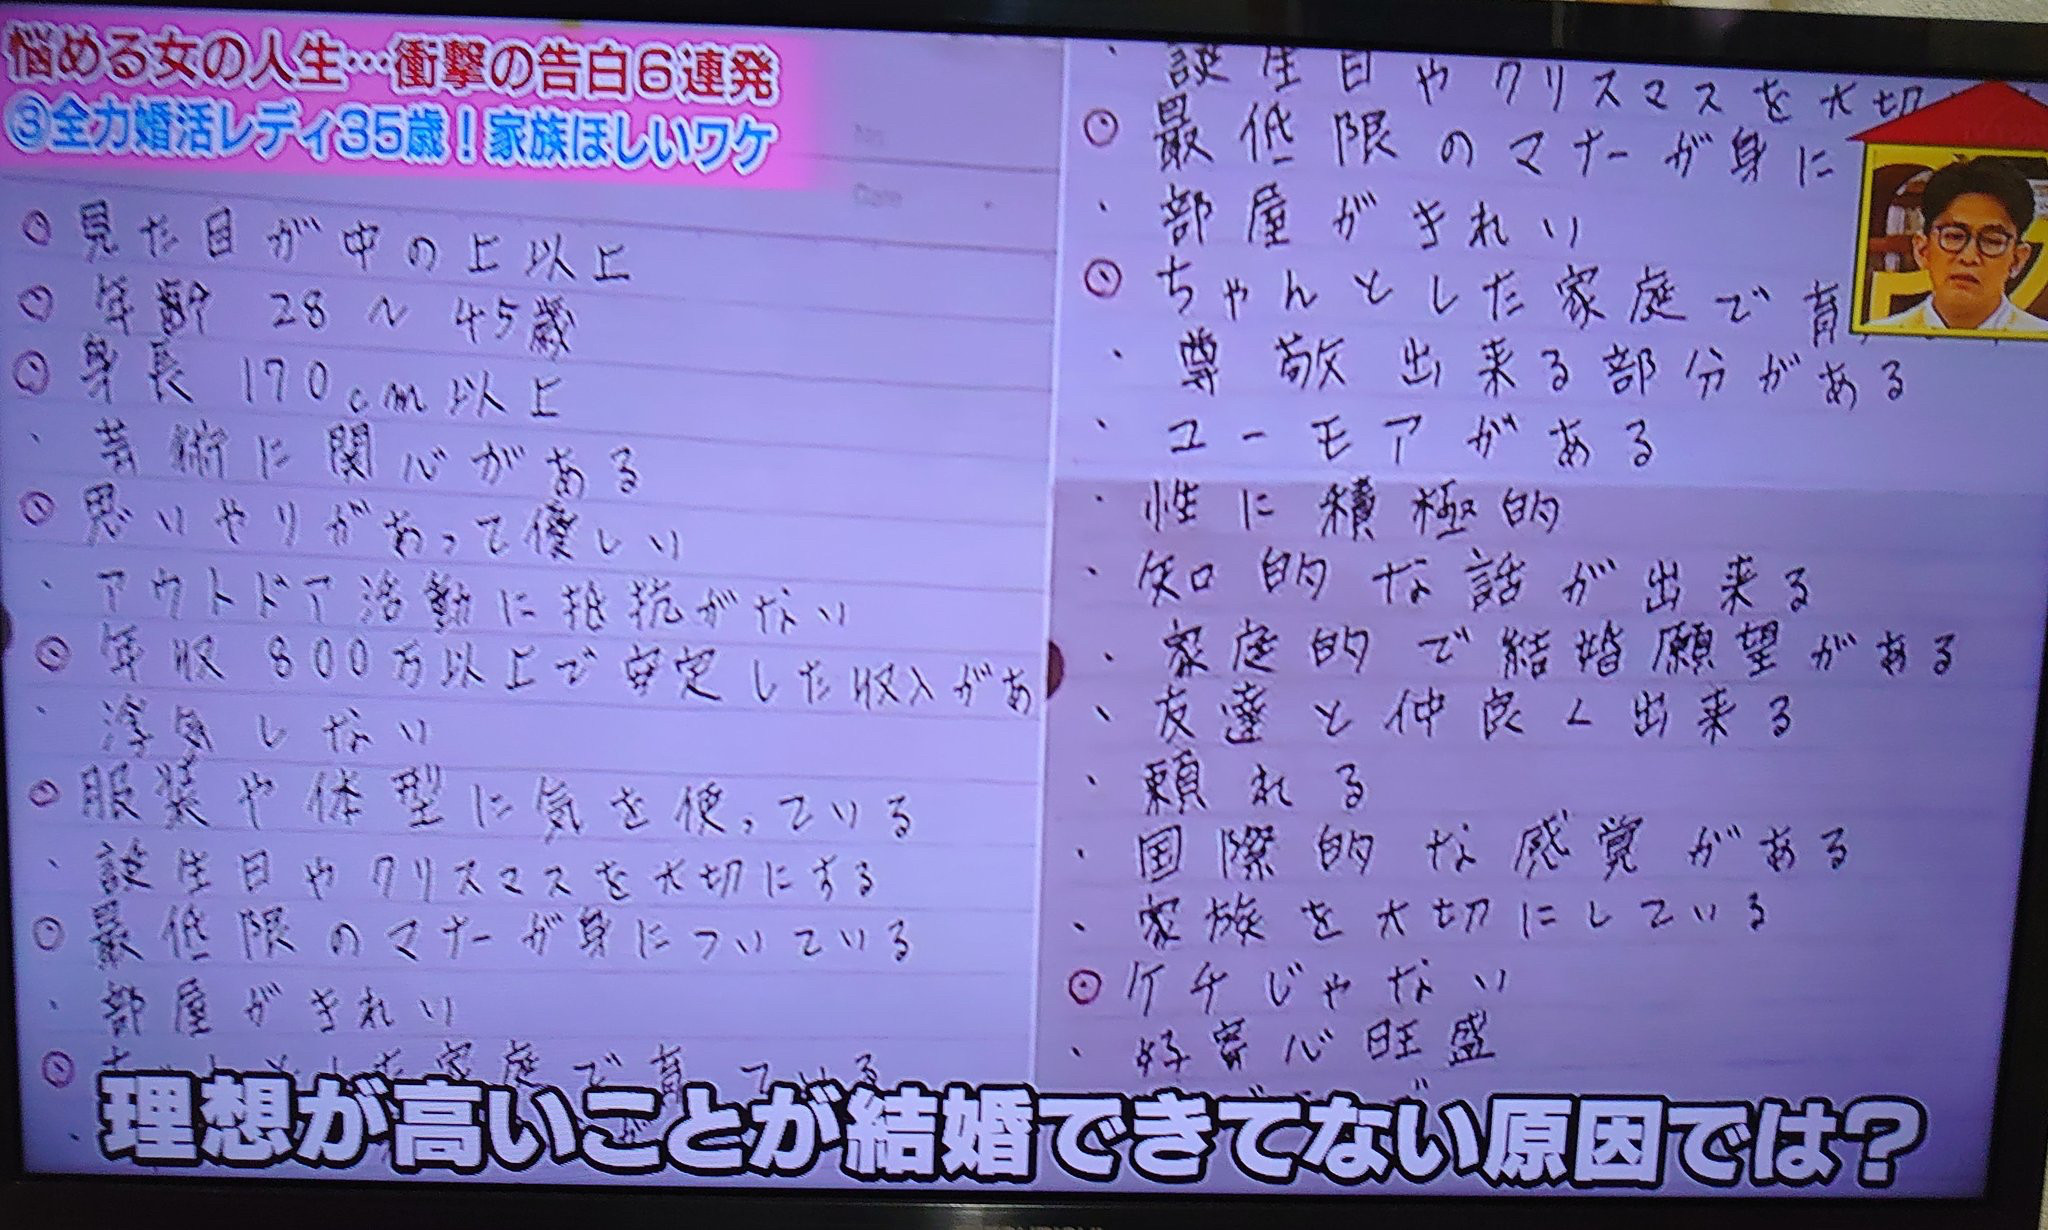 悩める女の人生…衝撃の告白6連発
③全力婚活レディ35歳!家族ほしいワケ
見た目が中の上以上
年齢 28〜45歳
身長 170cm以上
・芸術に関心がある
思いやりがあって優しい
・アウトドア活動に抵抗がない
年収 800万以上で安定した収入があ
・浮気しない
服装や体型に気を使っている
・誕生日やクリスマスを大切にする
最低限のマナーが身についている
・部屋がきれい
家庭で育っている
・誕生日やクリスマスを大切
最低限のマナーが身に
・部屋がきれい
ちゃんとした家庭で育
・尊敬出来る部分がある
・ユーモアがある
・性に積極的
・知的な話が出来る
・家庭的で結婚願望がある
・友達と仲良く出来る
・頼れる
・国際的な感覚がある
・家族を大切にしている
ケチじゃない
・好奇心旺盛
理想が高いことが結婚できてない原因では?